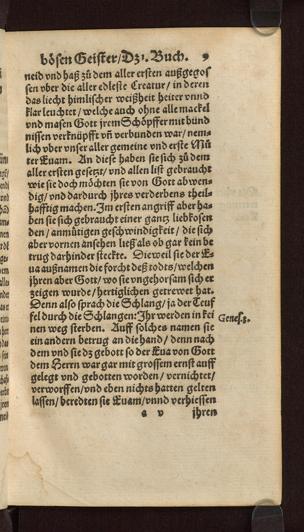 bösen Geister/Dz1. Buch. 9
neid vnd haß zů dem aller ersten außgegos
sen vber die aller edleste Creatur/ in deren
das liecht himlischer weißheit heiter vnnd
klar leuchtet/ welche auch ohne alle mackel
vnd masen Gott jrem Schöpffer mit bünd
nissen verknüpfft vñ verbunden war/ nem/
lich vber vnser aller gemeine vnd erste Můt
ter Euam. An diese haben sie sich zů dem
aller ersten gesetzt/ vnd allen list gebraucht
wie sie doch möchten sie von Gott abwen/
dig/ vnd dardurch jhres verderbens theil/
hafftig machen. Im ersten angriff aber ha/
ben sie sich gebraucht einer gantz liebkosen
den/ anmůtigen geschwindigkeit/ die sich
aber vornen ansehen ließ als ob gar kein be
trug darhinder steckte. Dieweil sie der E/
ua außnamen die forcht deß todts/ welchen
jhren aber Gott/ wo sie vngehorsam sich er
zeigen wurde/ hertiglichen getrewet hat.
Denn also sprach die Schlang/ ja der Teuf
fel durch die Schlangen: Ihr werden in kei
nen weg sterben. Auff solches namen sie
ein andern betrug an die hand/ denn nach
dem vnd sie dz gebott so der Eua von Gott
dem Herrn war gar mit grossem ernst auff
gelegt vnd gebotten worden/ vernichtet/
verworffen/ vnd eben nichts hatten gelten
lassen/ beredten sie Euam/ vnnd verhiessen
Genes. 3.
a v jhren